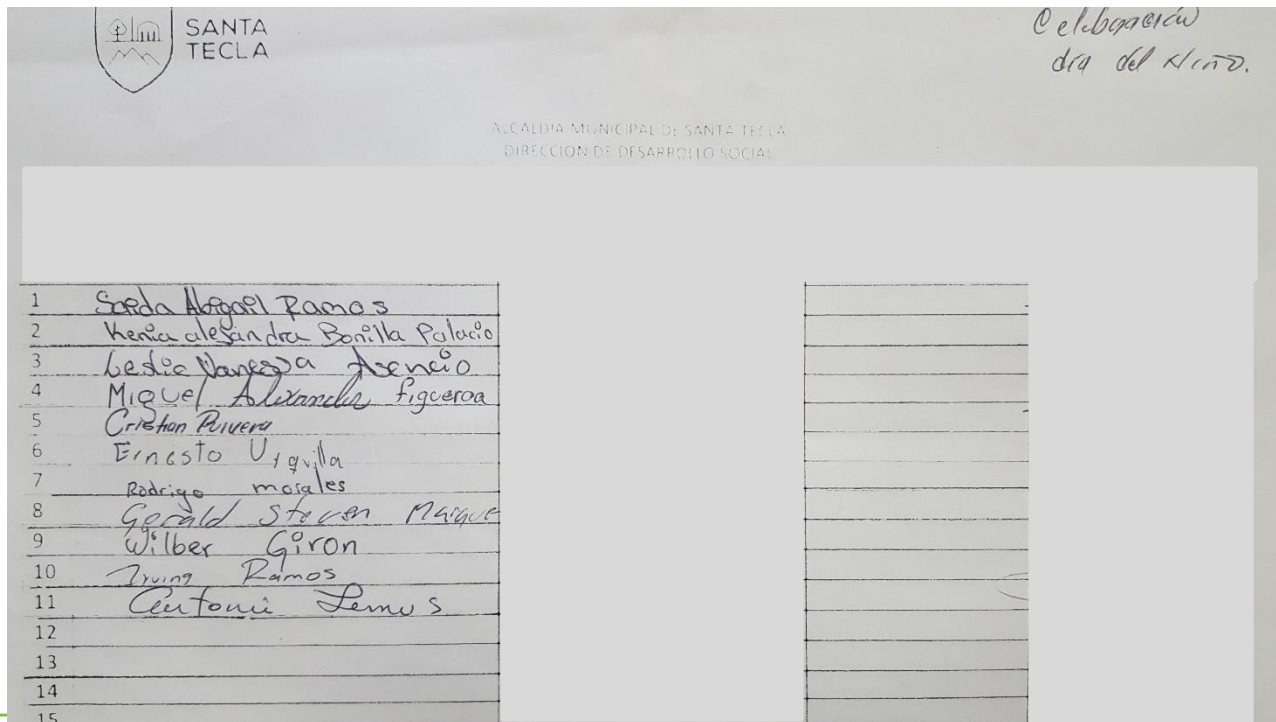 SANTA
TECLA
Celebración
día del Niño.
ALCALDIA MUNICIPAL DE SANTA TECLA
DIRECCION DE DESARROLLO SOCIAL
1 Abigail Ramos
2 Kenia alejandra Bonilla Palacio
3 Leslie Vanessa Asencio
4 Miguel Alexander figueroa
5 Cristian Rivera
6 Ernesto Urquilla
7 Rodrigo morales
8 Gerald Steven Marque
9 Wilber Giron
10 Irving Ramos
11 Lemus
12
13
14
15